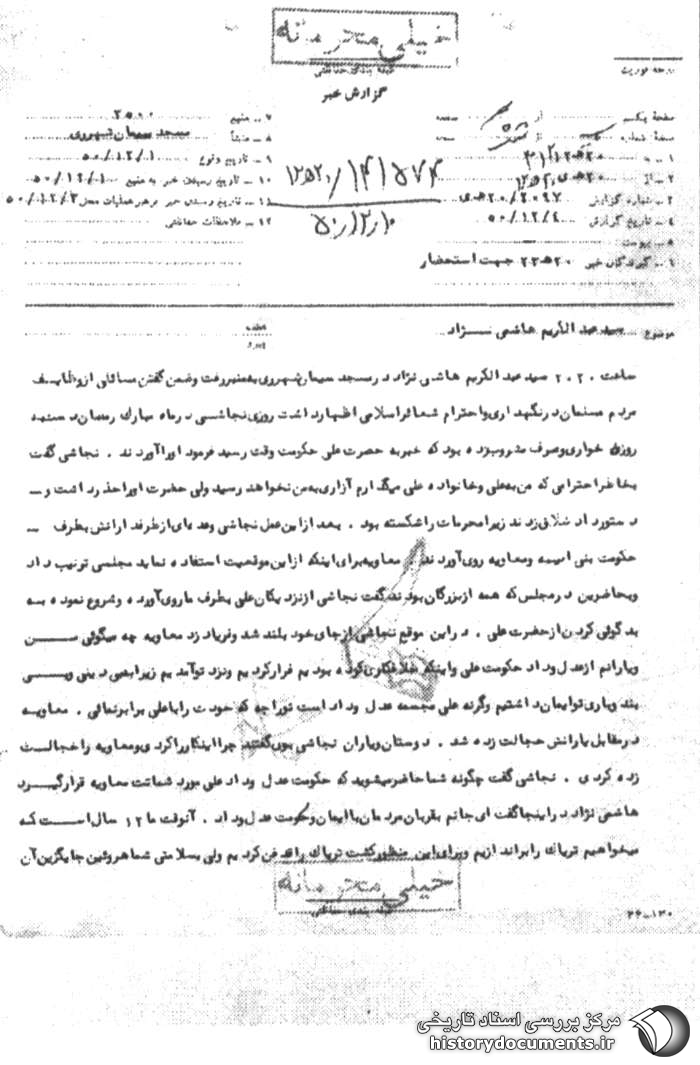 خیلی محرمانه
طبقه بندی حفاظتی
گزارش خبر
درجه فوریت
صفحه یکم از صفحه
نسخه شماره از نسخه
۱ – به
۲ – از
۳ – شماره گزارش
۴ – تاریخ گزارش ۵۰/۱۲/۴
۵ – پیوست
۶ – گیرندگان خبر ۲۲ه۲۰ جهت استحضار
۷ – منبع ۲۵۰۰
۸ – منشأ مسجد سیمان شهرری
۹ – تاریخ وقوع ۵۰/۱۲/۱
۱۰ – تاریخ رسیدن خبر به منبع ۵۰/۱۲/۱
۱۱ – تاریخ رسیدن خبر برهبر عملیات محل ۵۰/۱۲/۳
۱۲ – ملاحظات حفاظتی
۵۰/۱۲/۱۰
موضوع سید عبدالکریم هاشمی نژاد
ساعت ۲۰۲۰ سید عبدالکریم هاشمی نژاد در مسجد سیمان شهرری به منبر رفت و ضمن گفتن مسائلی از وظایف
مردم مسلمان در نگهداری و احترام شعائر اسلامی اظهار داشت روزی نجاشی در ماه مبارک رمضان دست به
روزه خواری و صرف مشروب زده بود که خبر به حضرت علی حکومت وقت رسید فرمود او را آوردند . نجاشی گفت
بخاطر احترامی که من به علی و خانواده علی میگذارم آزاری به من نخواهد رسید ولی حضرت او را حد زد است و –
دستور داد شلاق زدند زیرا محرمات را شکسته بود . بعد از این عمل نجاشی و عده ای از طرفدارانش بطرف –
حکومت بنی امیه و معاویه روی آوردند . معاویه برای اینکه از این موقعیت استفاده نماید مجلسی ترتیب داد
و بحاضرین در مجلس که همه از بزرگان بودند گفت نجاشی از نزدیکان علی بطرف ما روی آورده و شروع نمود به
بدگوئی کردن از حضرت علی . در این موقع نجاشی از جای خود بلند شد و فریاد زد معاویه چه میگوئی من
و یارانم از عدل و داد حکومت علی و اینکه خلافکاری کرده بودیم فرار کردیم و نزد تو آمدیم زیرا بعمی دینی و بی
بند و باری تو ایمان داشتیم وگرنه علی مجسمه عدل و داد است تو را چه که خودت را با علی برابر نمائی . معاویه
در مقابل یارانش خجالت زده شد . دوستان و یاران نجاشی بوی گفتند چرا اینکار را کردی و معاویه را خجالت
زده کردی . نجاشی گفت چگونه شما حاضر میشوید که حکومت عدل و داد علی مورد شماتت معاویه قرار گیرد
هاشمی نژاد در اینجا گفت ای جانم بقربان مردمان با ایمان و حکومت عدل و داد . آنوقت ما ۱۲ سال است که
میخواهیم تریاک را براندازیم و برای این منظور کشت تریاک را قدغن کردیم ولی بسلامتی شما هروئین جایگزین آن
خیلی محرمانه
طبقه بندی حفاظتی
۲۶–۱۳۰
مرکز بررسی اسناد تاریخی
historydocuments.ir